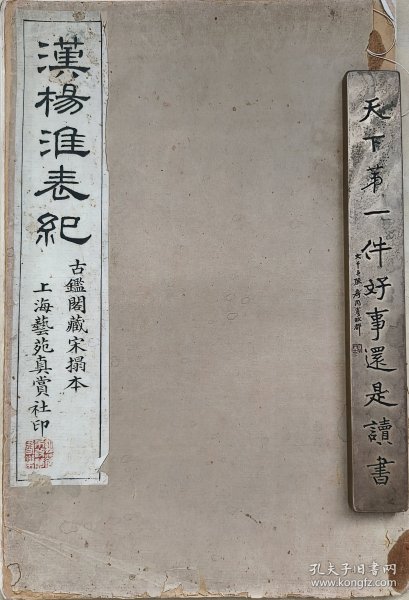 漢楊淮表紀
古鑑閣藏宋搨本
上海藝苑真賞社印
天下第一件好事還是讀書
孔夫子旧书网
book.kongfz.com